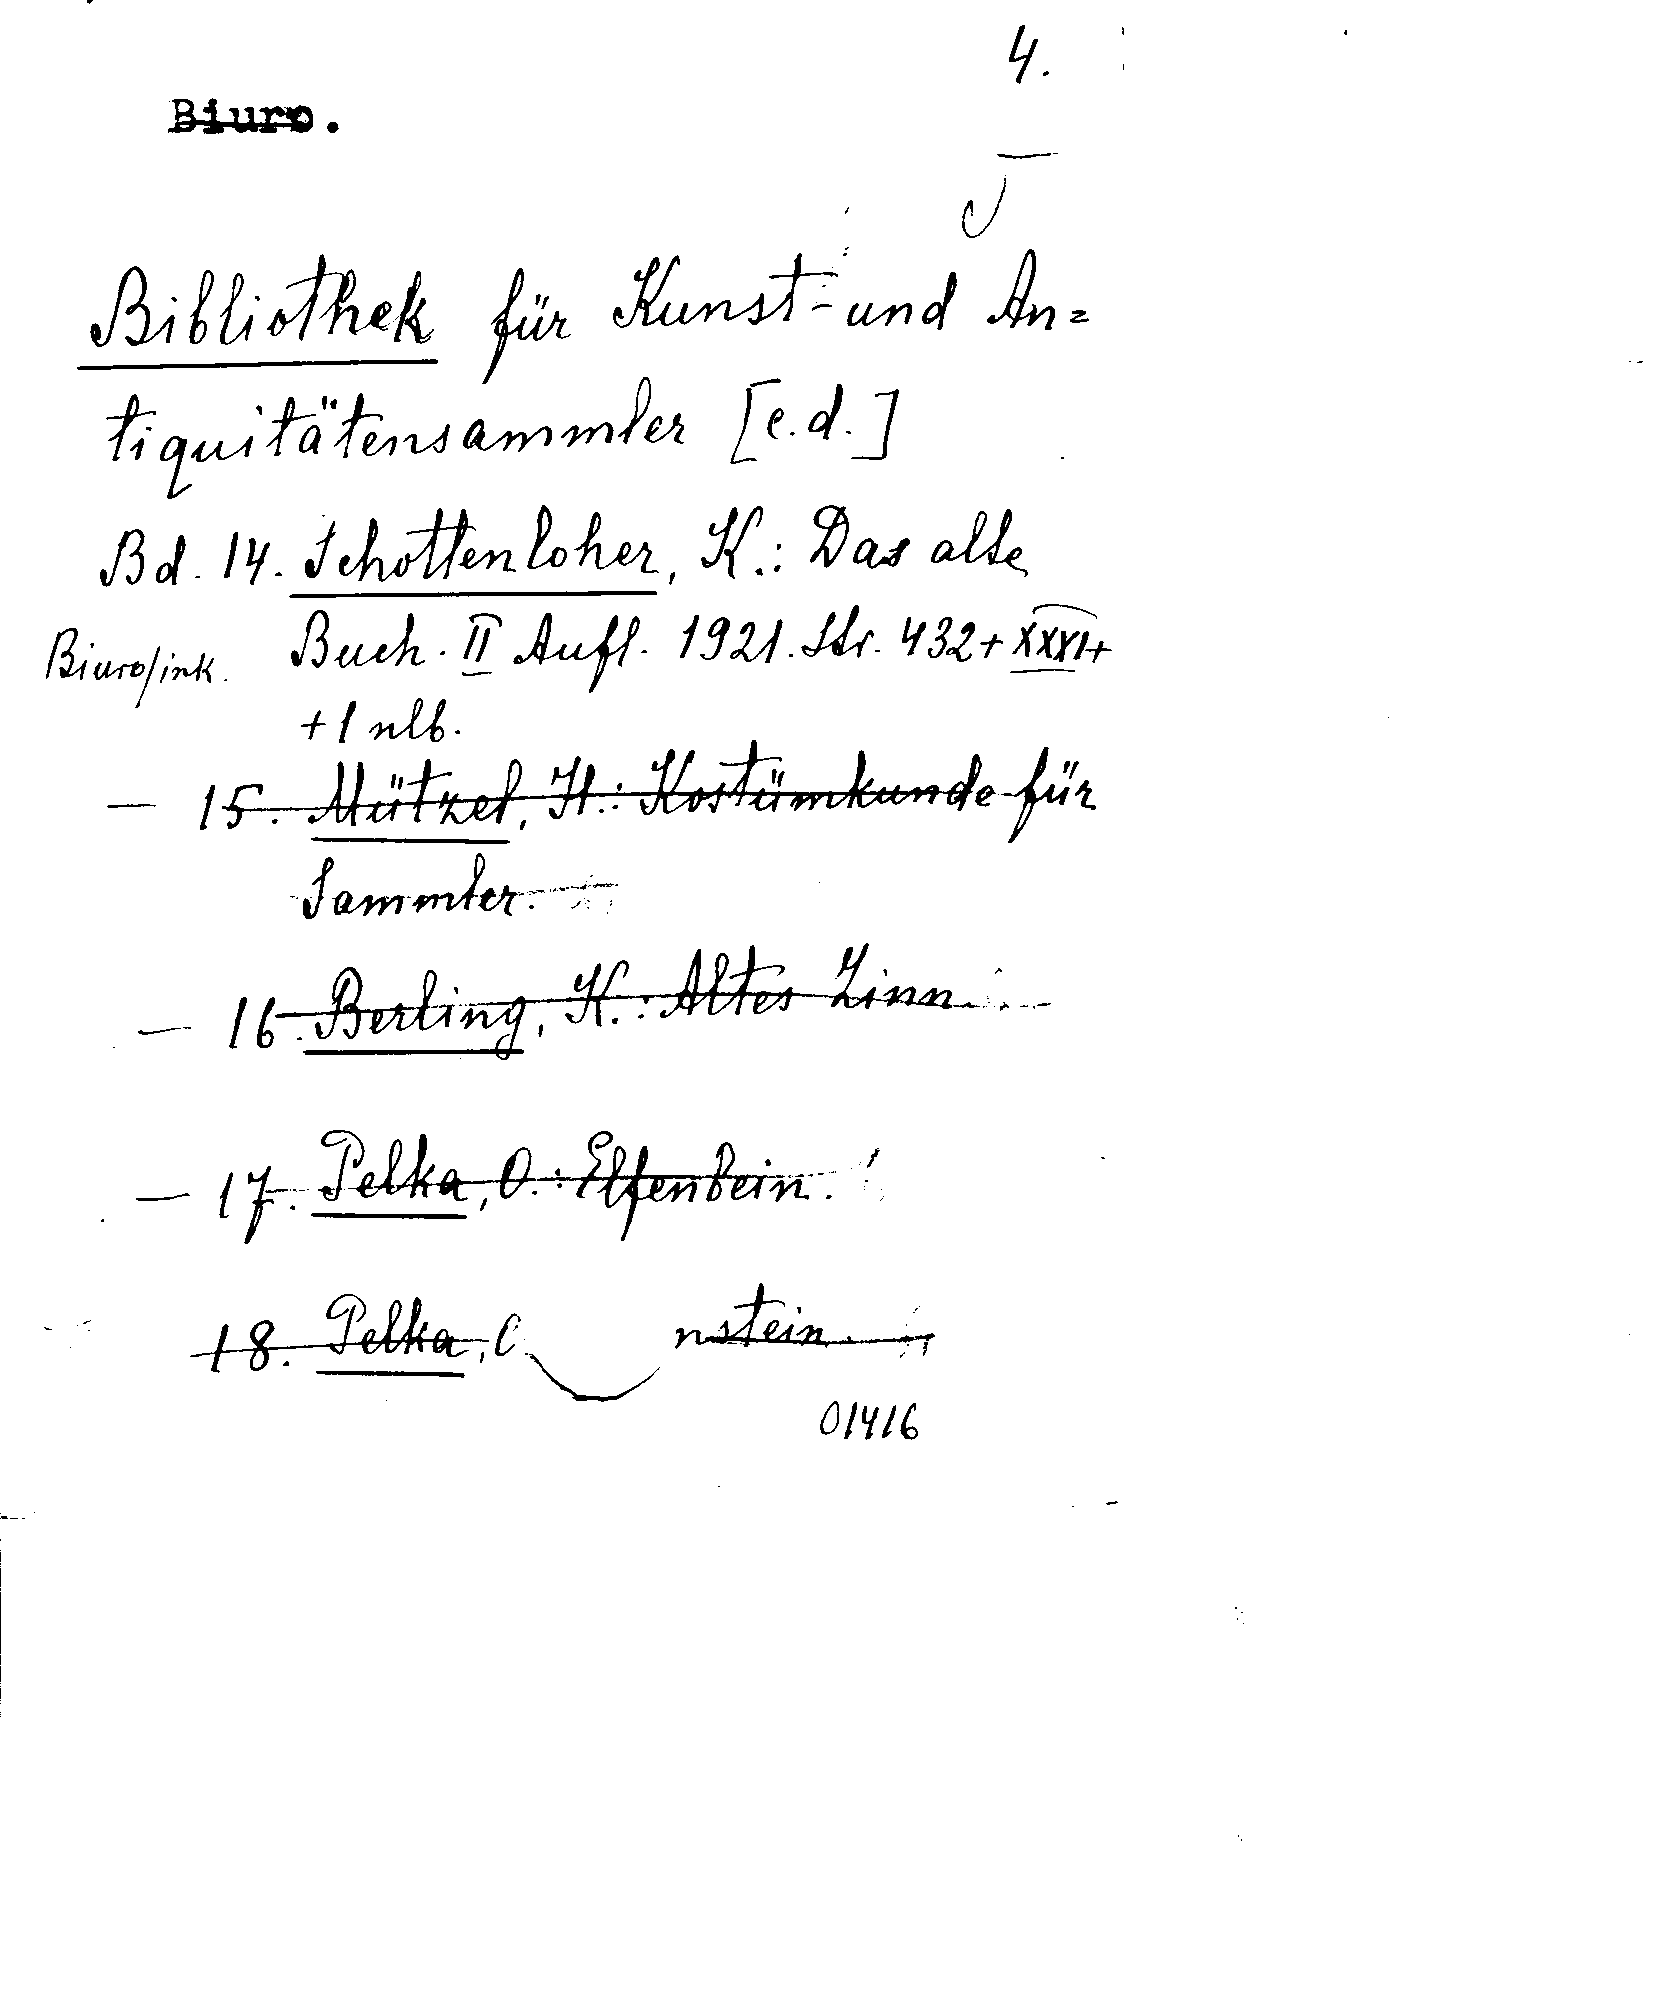 4.
Biuro.
Bibliothek für Kunst- und An=
tiquitätensammler [e.d.]
Bd. 14. Schottenloher, K.: Das alte
Biuro/ink. Buch. II Aufl. 1921. Str. 432 + XXXI +
+ 1 nlb.
— 15. Mützel, H.: Kostümkunde für
Sammler.
— 16. Berling, K.: Altes Zinn.
— 17. Pelka, O.: Elfenbein.
18. Pelka, nstein.
01416